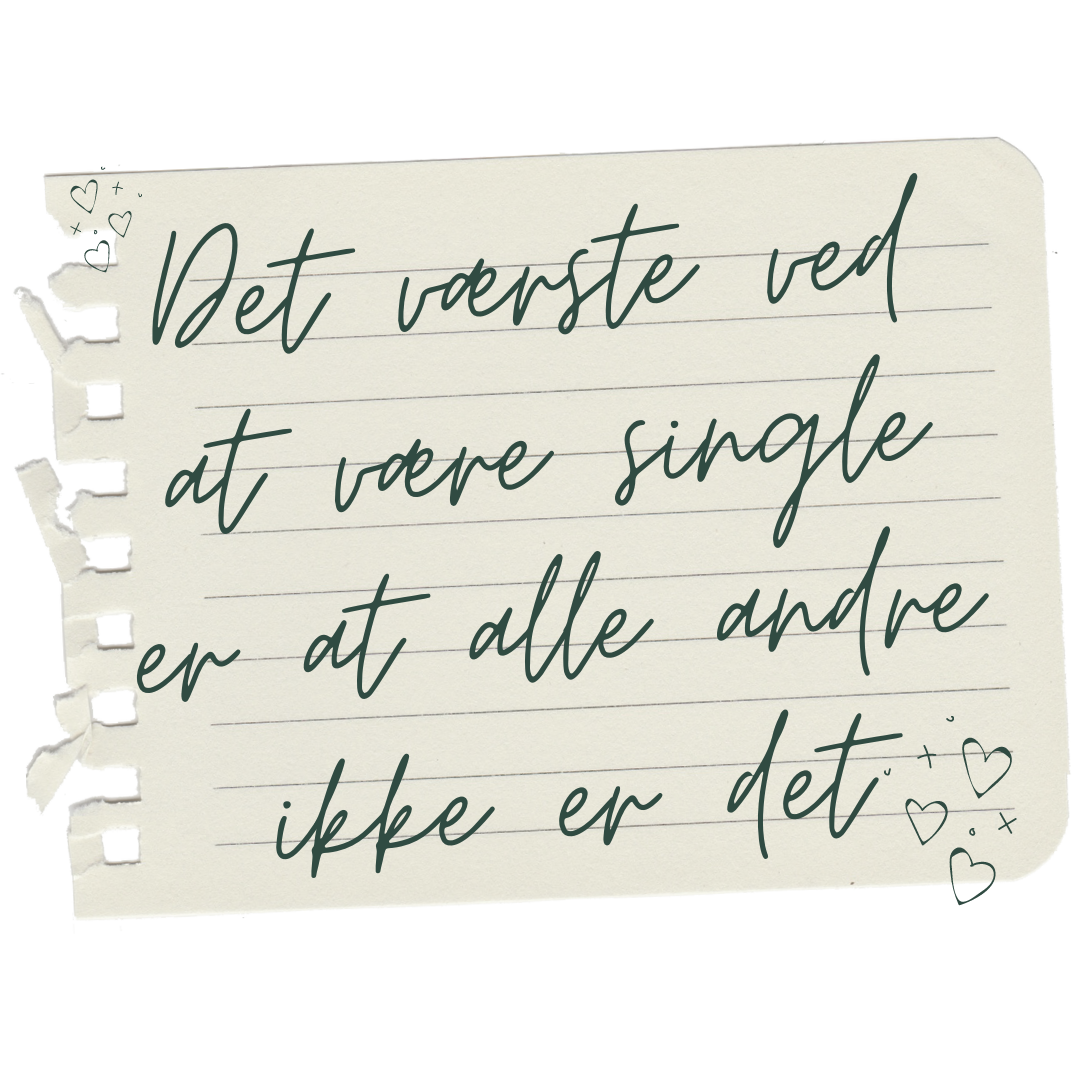 Det værste ved
at være single
er at alle andre
ikke er det